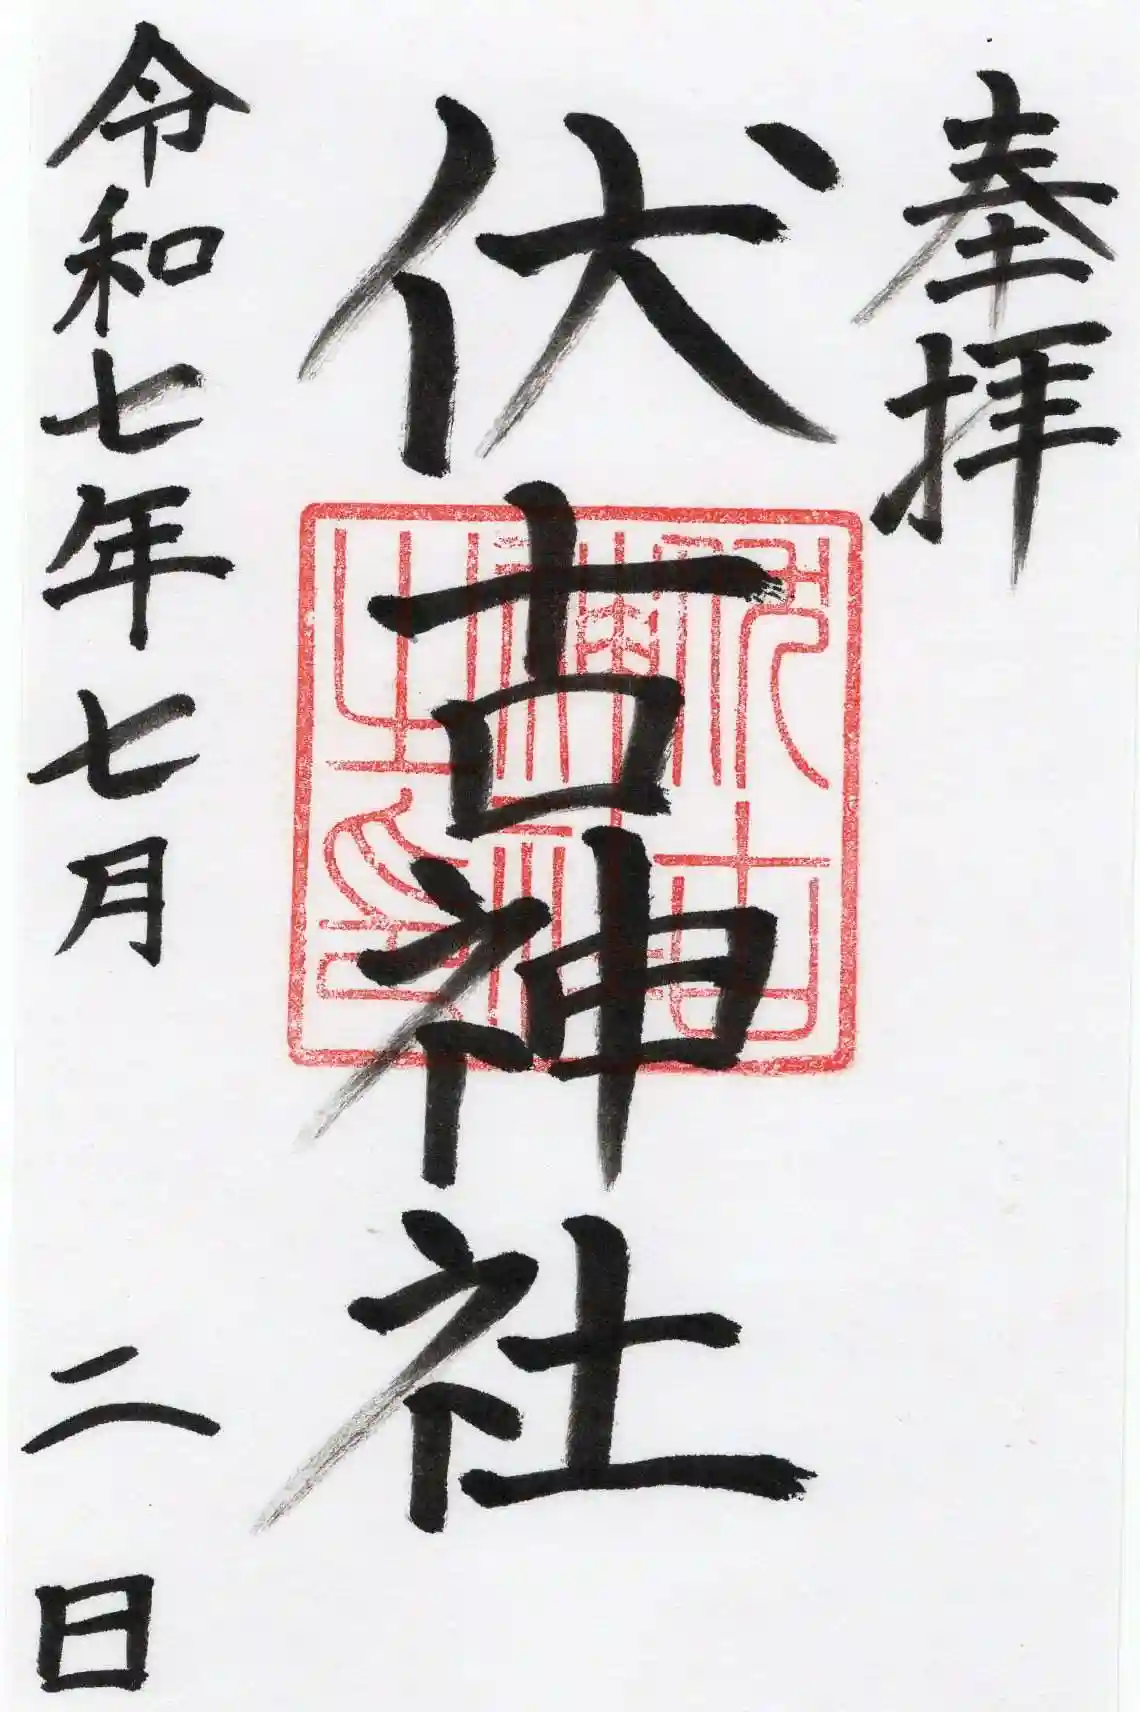 奉拝
伏古神社
伏古
神社
之印
令和七年七月二日